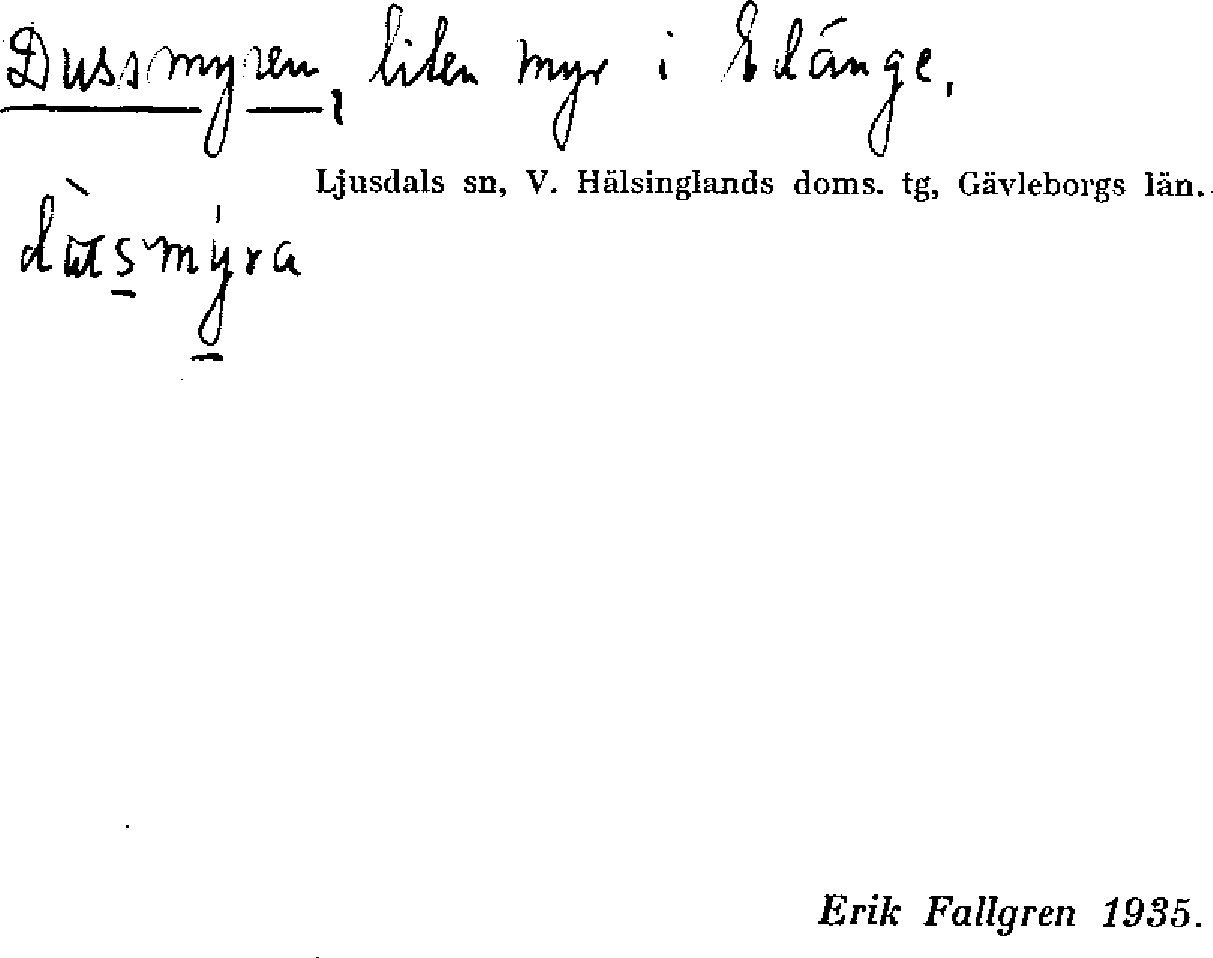 Dussmyren, liten myr i Edänge.
Ljusdals sn, V. Hälsinglands doms. tg, Gävleborgs län.
Erik Fallgren 1935.